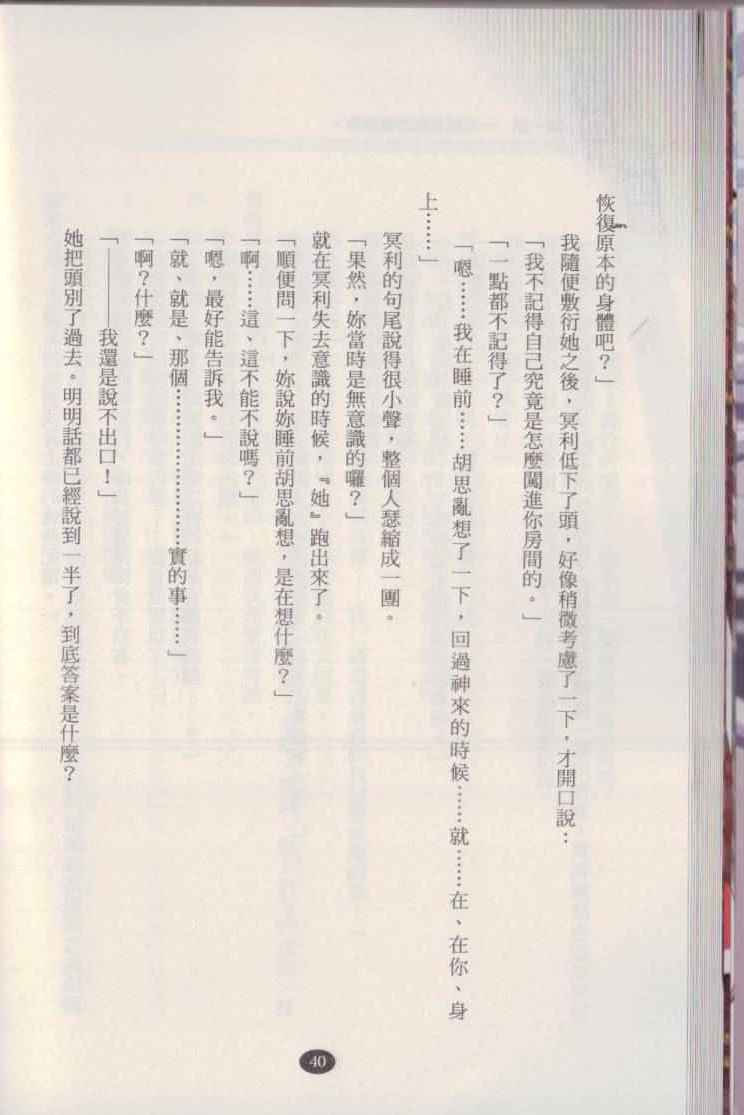 恢復原本的身體吧？」
我隨便敷衍她之後，冥利低下了頭，好像稍微考慮了一下，才開口說：
「我不記得自己究竟是怎麼闖進你房間的。」
「一點都不記得了？」
「嗯……我在睡前……胡思亂想了一下，回過神來的時候……就……在、在你、身
上……」
冥利的句尾說得很小聲，整個人瑟縮成一團。
「果然，妳當時是無意識的囉？」
就在冥利失去意識的時候，『她』跑出來了。
「順便問一下，妳說妳睡前胡思亂想，是在想什麼？」
「啊……這、這不能不說嗎？」
「嗯，最好能告訴我。」
「就、就是、那個…………………實的事……」
「啊？什麼？」
「——我還是說不出口！」
她把頭別了過去。明明話都已經說到一半了，到底答案是什麼？
40